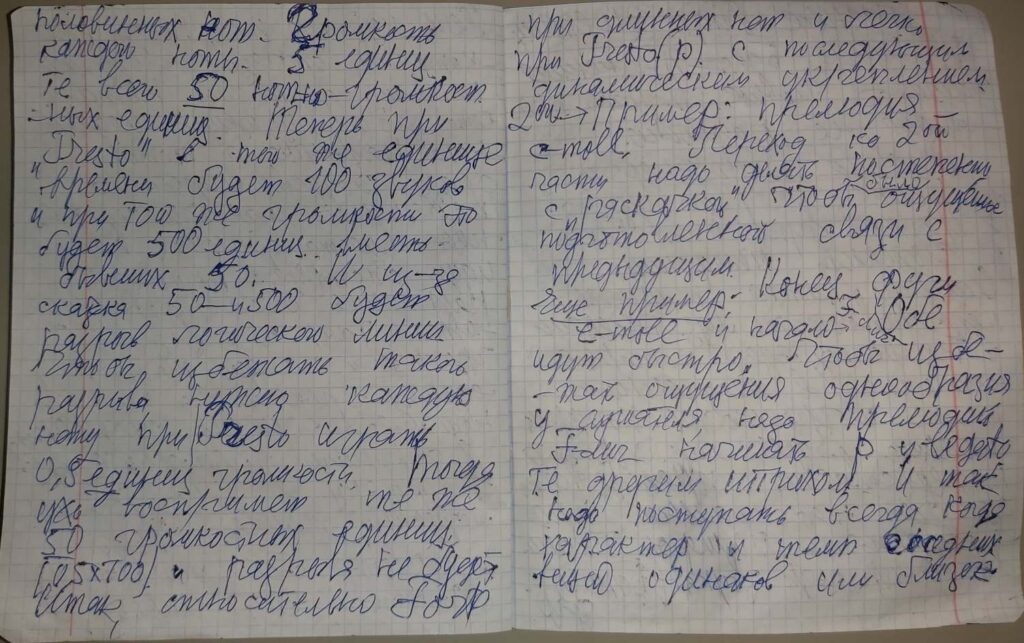 половинных нот. Громкость
каждой ноты. 5 единиц
Те всего 50 нотно-громкост
-ных единиц. Теперь при
"Presto" в той же единице
времени будет 100 звуков
и при той же громкости это
будет 500 единиц вместо
бывших 50. И из-за
скачка 50 и 500 будет
разрыв логической линии
Чтобы избежать такого
разрыва, нужно каждую
ноту при Presto играть
0,5 единиц громкости. Тогда
ухо воспримет те же
50 громкостных единиц,
(0,5x100) и разрыва не будет.
Итак, относительно
при длинных нот и легко
при Presto (p) с последующим
динамическим укреплением.
2ой → Пример: прелюдия
c-moll. Переход ко 2ой
части надо делать постепенно
с "раскачкой" Чтобы было ощущение
подготовленной связи с
предыдущим.
Еще пример: Конец фуги
c-moll и начало F Обе
идут быстро. Чтобы избе-
-жать ощущения однообразия
у слушателя, надо прелюдию
начинать p и legato
Те другим штрихом. И так
надо поступать всегда, когда
характер и темп соседних
одинаков или близок